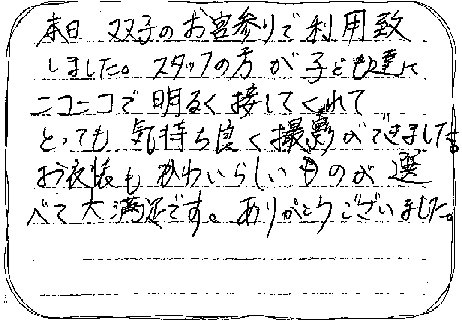 本日 双子のお宮参りで利用致
しました。スタッフの方が子ども達に
ニコニコで明るく接してくれて
とっても気持ち良く撮影ができました。
お衣装もかわいらしいものが選
べて大満足です。ありがとうございました。